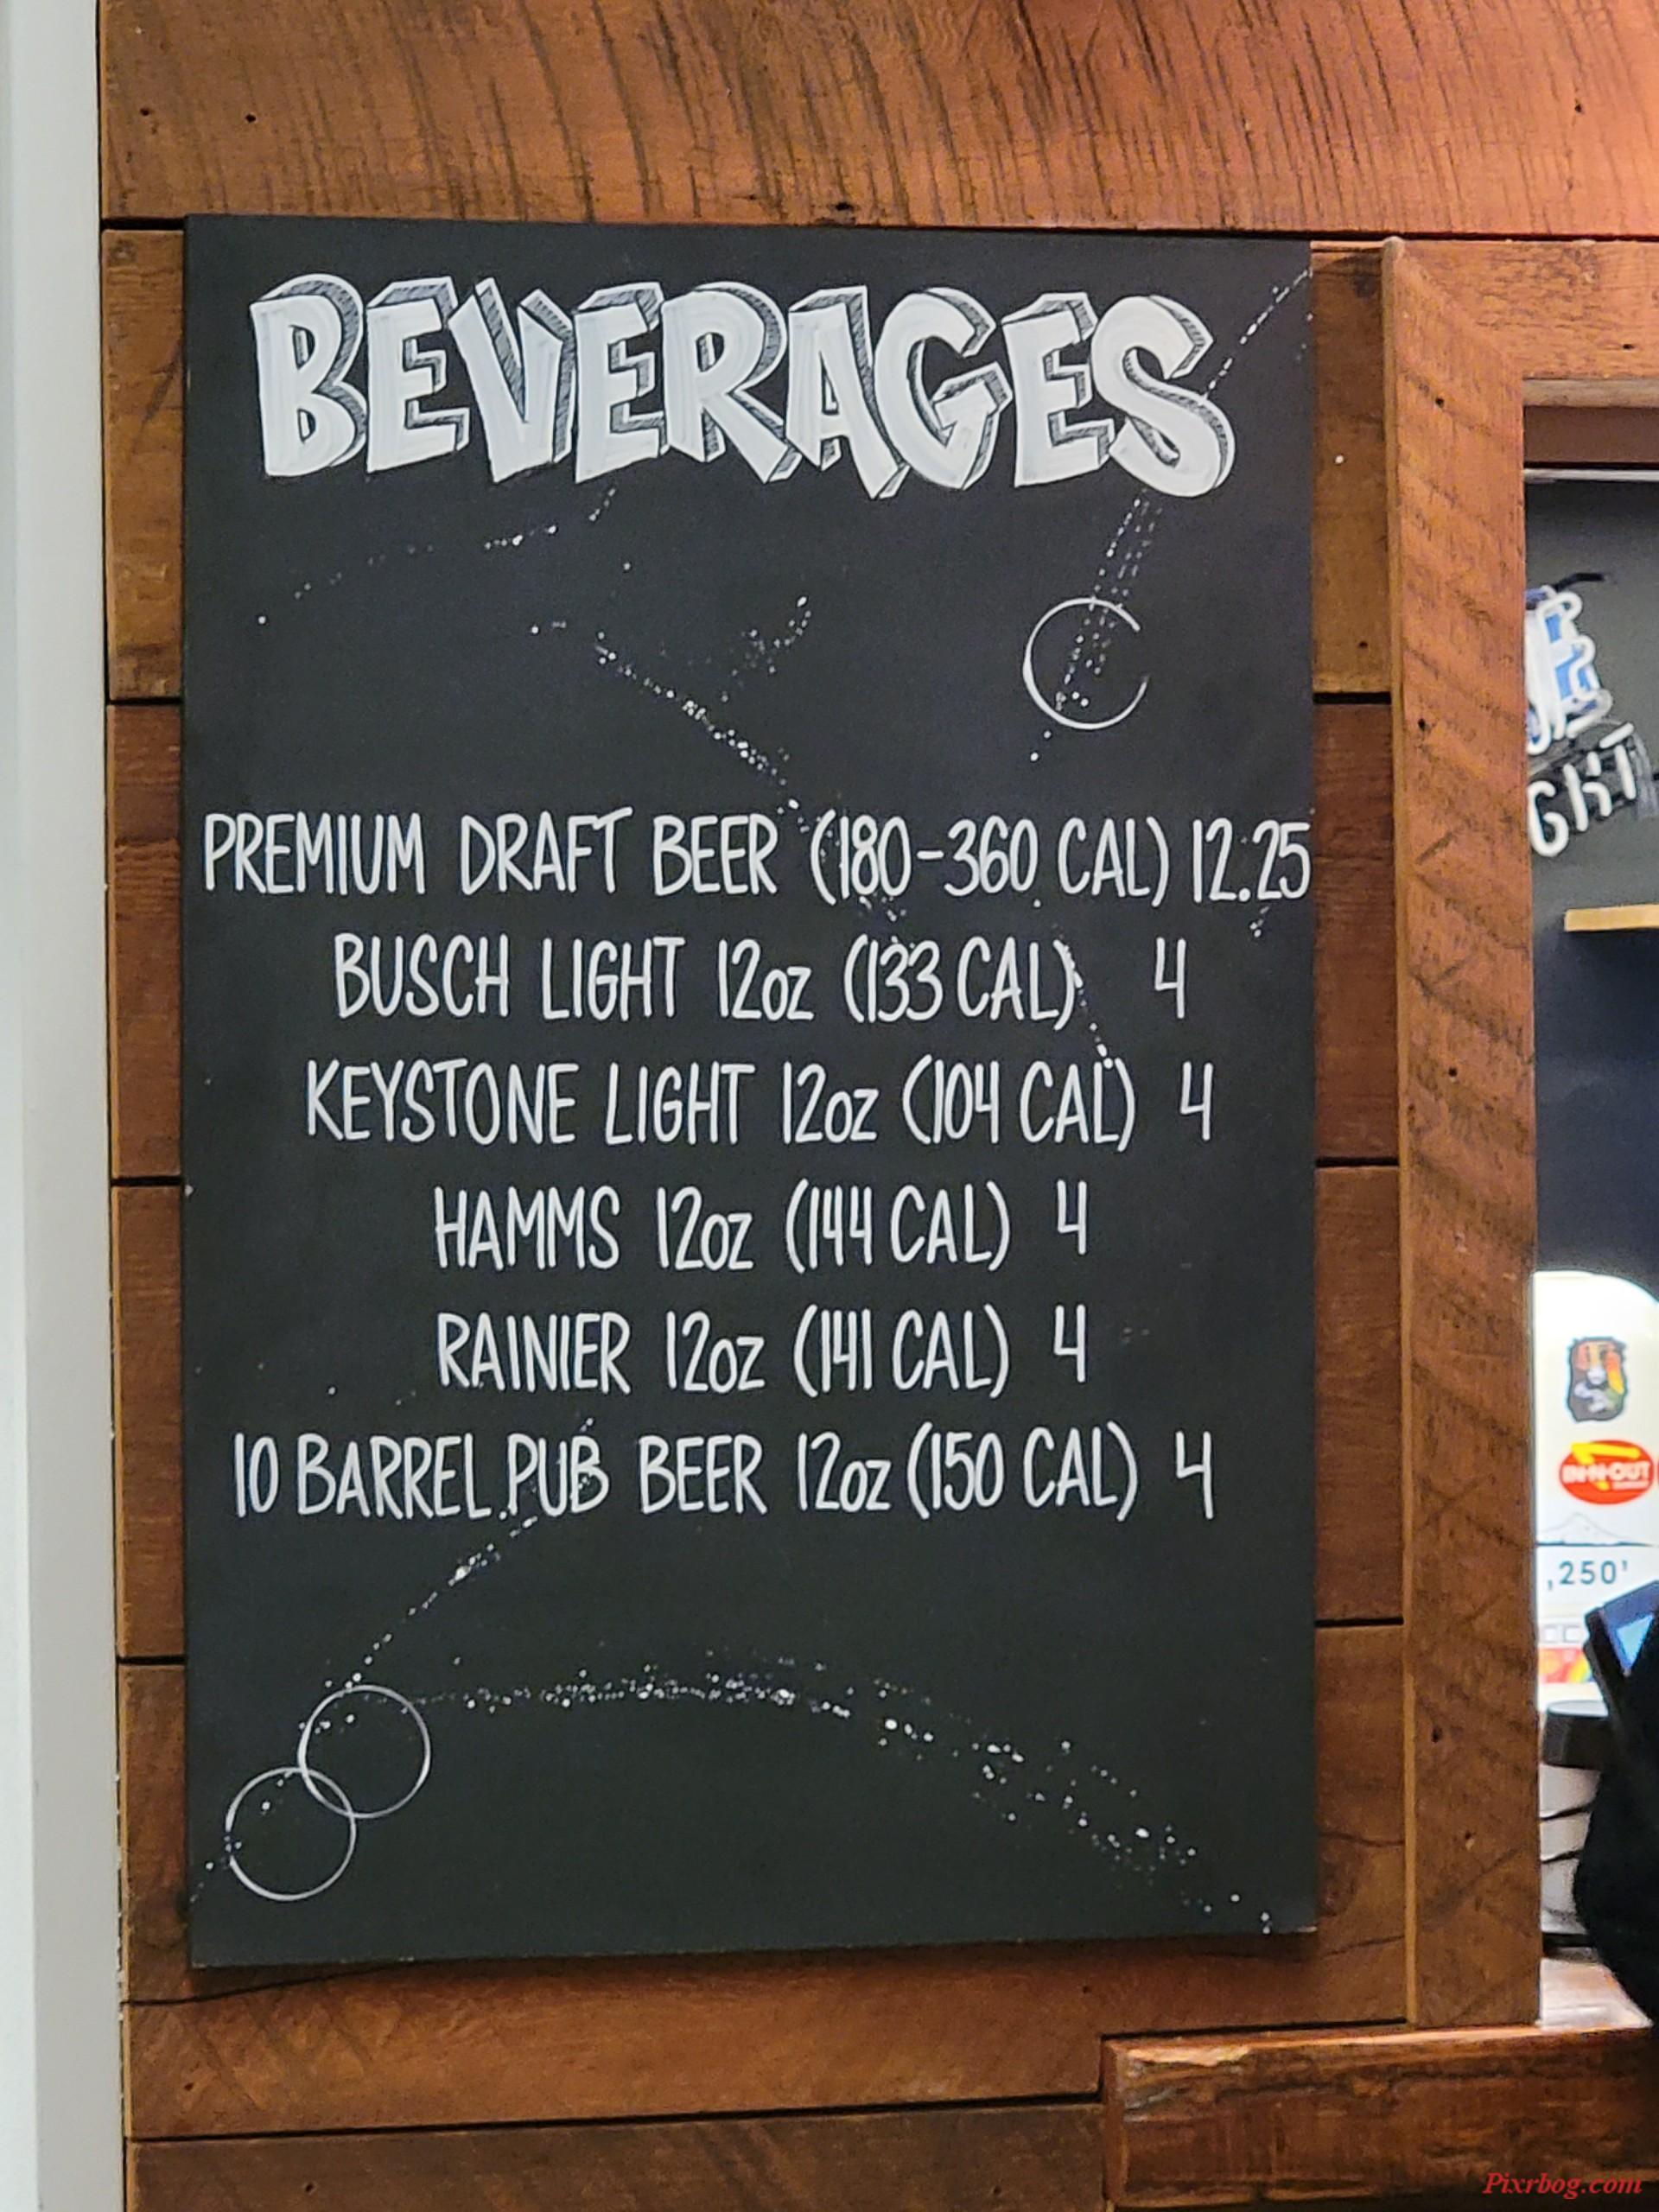 BEVERAGES
PREMIUM DRAFT BEER (180-360 CAL) 12.25
BUSCH LIGHT 12oz (133 CAL) 4
KEYSTONE LIGHT 12oz (104 CAL) 4
HAMMS 12oz (144 CAL) 4
RAINIER 12oz (141 CAL) 4
10 BARREL PUB BEER 12oz (150 CAL) 4
IN-N-OUT
,250'
Pixrbog.com